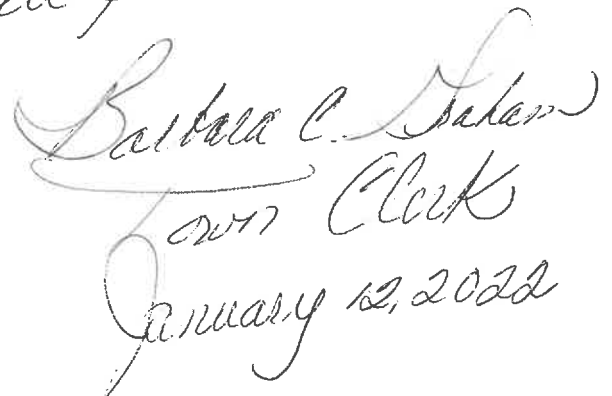 Barbara C. Graham
Town Clerk
January 12, 2022